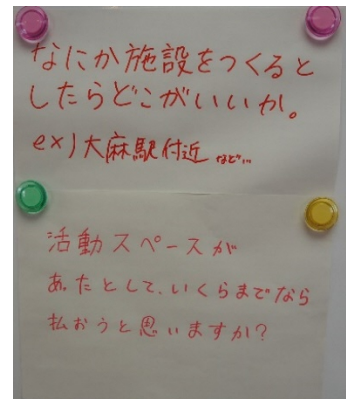 なにか施設をつくると
したらどこがいいか。
ex)大麻駅付近 など...
活動スペースが
あったとして、いくらまでなら
払おうと思いますか?